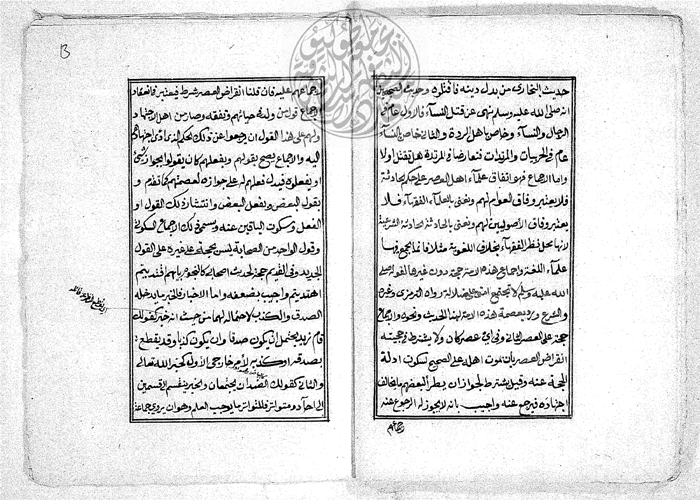 حديث البخارى من بدل دينه فاقتلوه وحديث الصحيحين
انه صلى الله عليه وسلم نهى عن قتل النسآء فالاول عام فى
الرجال والنسآء وخاص باهل الردة والثانى خاص بالنسآء
عام فى الحربيات والمرتدات فتعارضا فى المرتدة هل تقتل اولا
واما الاجماع فهو اتفاق علمآء اهل العصر على حكم الحادثة
فلا يعتبر وفاق العوام لهم ونعنى بالعلمآء الفقهآء فلا
يعتبر وفاق الأصوليين لهم ونعنى بالحادثة الحادثة الشرعية
لانها محل نظر الفقهآء بخلاف اللغوية مثلا فانما يجمع فيها
علمآء اللغة واجماع هذه الامة حجة دون غيرها لقوله صلى
الله عليه وسلم لا تجتمع امتى على ضلالة رواه الترمذى وغيره
والشرع ورد بعصمة هذه الامة لهذا الحديث ونحوه والاجماع
حجة على العصر الثانى وفى اى عصر كان ولا يشترط فى حجيته
انقراض العصر بان يموت اهله على الصحيح لسكوت ادلة
الحجة عنه وقيل يشترط لجواز ان يطرأ لبعضهم ما يخالف
اجتهاده فيرجع عنه واجيب بانه لا يجوز له الرجوع عنه
اجماعهم عليه فان قلنا انقراض العصر شرط فيعتبر فى انعقاد
الاجماع قول من ولد فى حياتهم وتفقه وصار من اهل الاجتهاد
ولهم على هذا القول ان يرجعوا عن ذلك الحكم الذى ادى اجتهادهم
اليه والاجماع يصح بقولهم وبفعلهم كان يقولوا بجواز شئ
او يفعلوه فيدل فعلهم له على جوازه لعصمتهم كما تقدم و
بقول البعض وبفعل البعض وانتشار ذلك القول او
الفعل وسكوت الباقين عنه ويسمى ذلك الاجماع السكوتى
وقول الواحد من الصحابة ليس بحجة على غيره على القول
الجديد وفى القديم حجة لحديث اصحابى كالنجوم بايهم اقتديتم
اهتديتم واجيب بضعفه واما الاخبار فالخبر ما يدخله
الصدق والكذب لاحتماله لهما من حيث انه خبر كقولك
قام زيد يحتمل ان يكون صدقا وان يكون كذبا وقد يقطع
بصدقه او كذبه لامر خارجى الاول كخبر الله تعالى
والثانى كقولك الضدان يجتمعان والخبر ينقسم الى قسمين
الى احاد ومتواتر فالمتواتر ما يوجب العلم وهو ان يروى جماعة